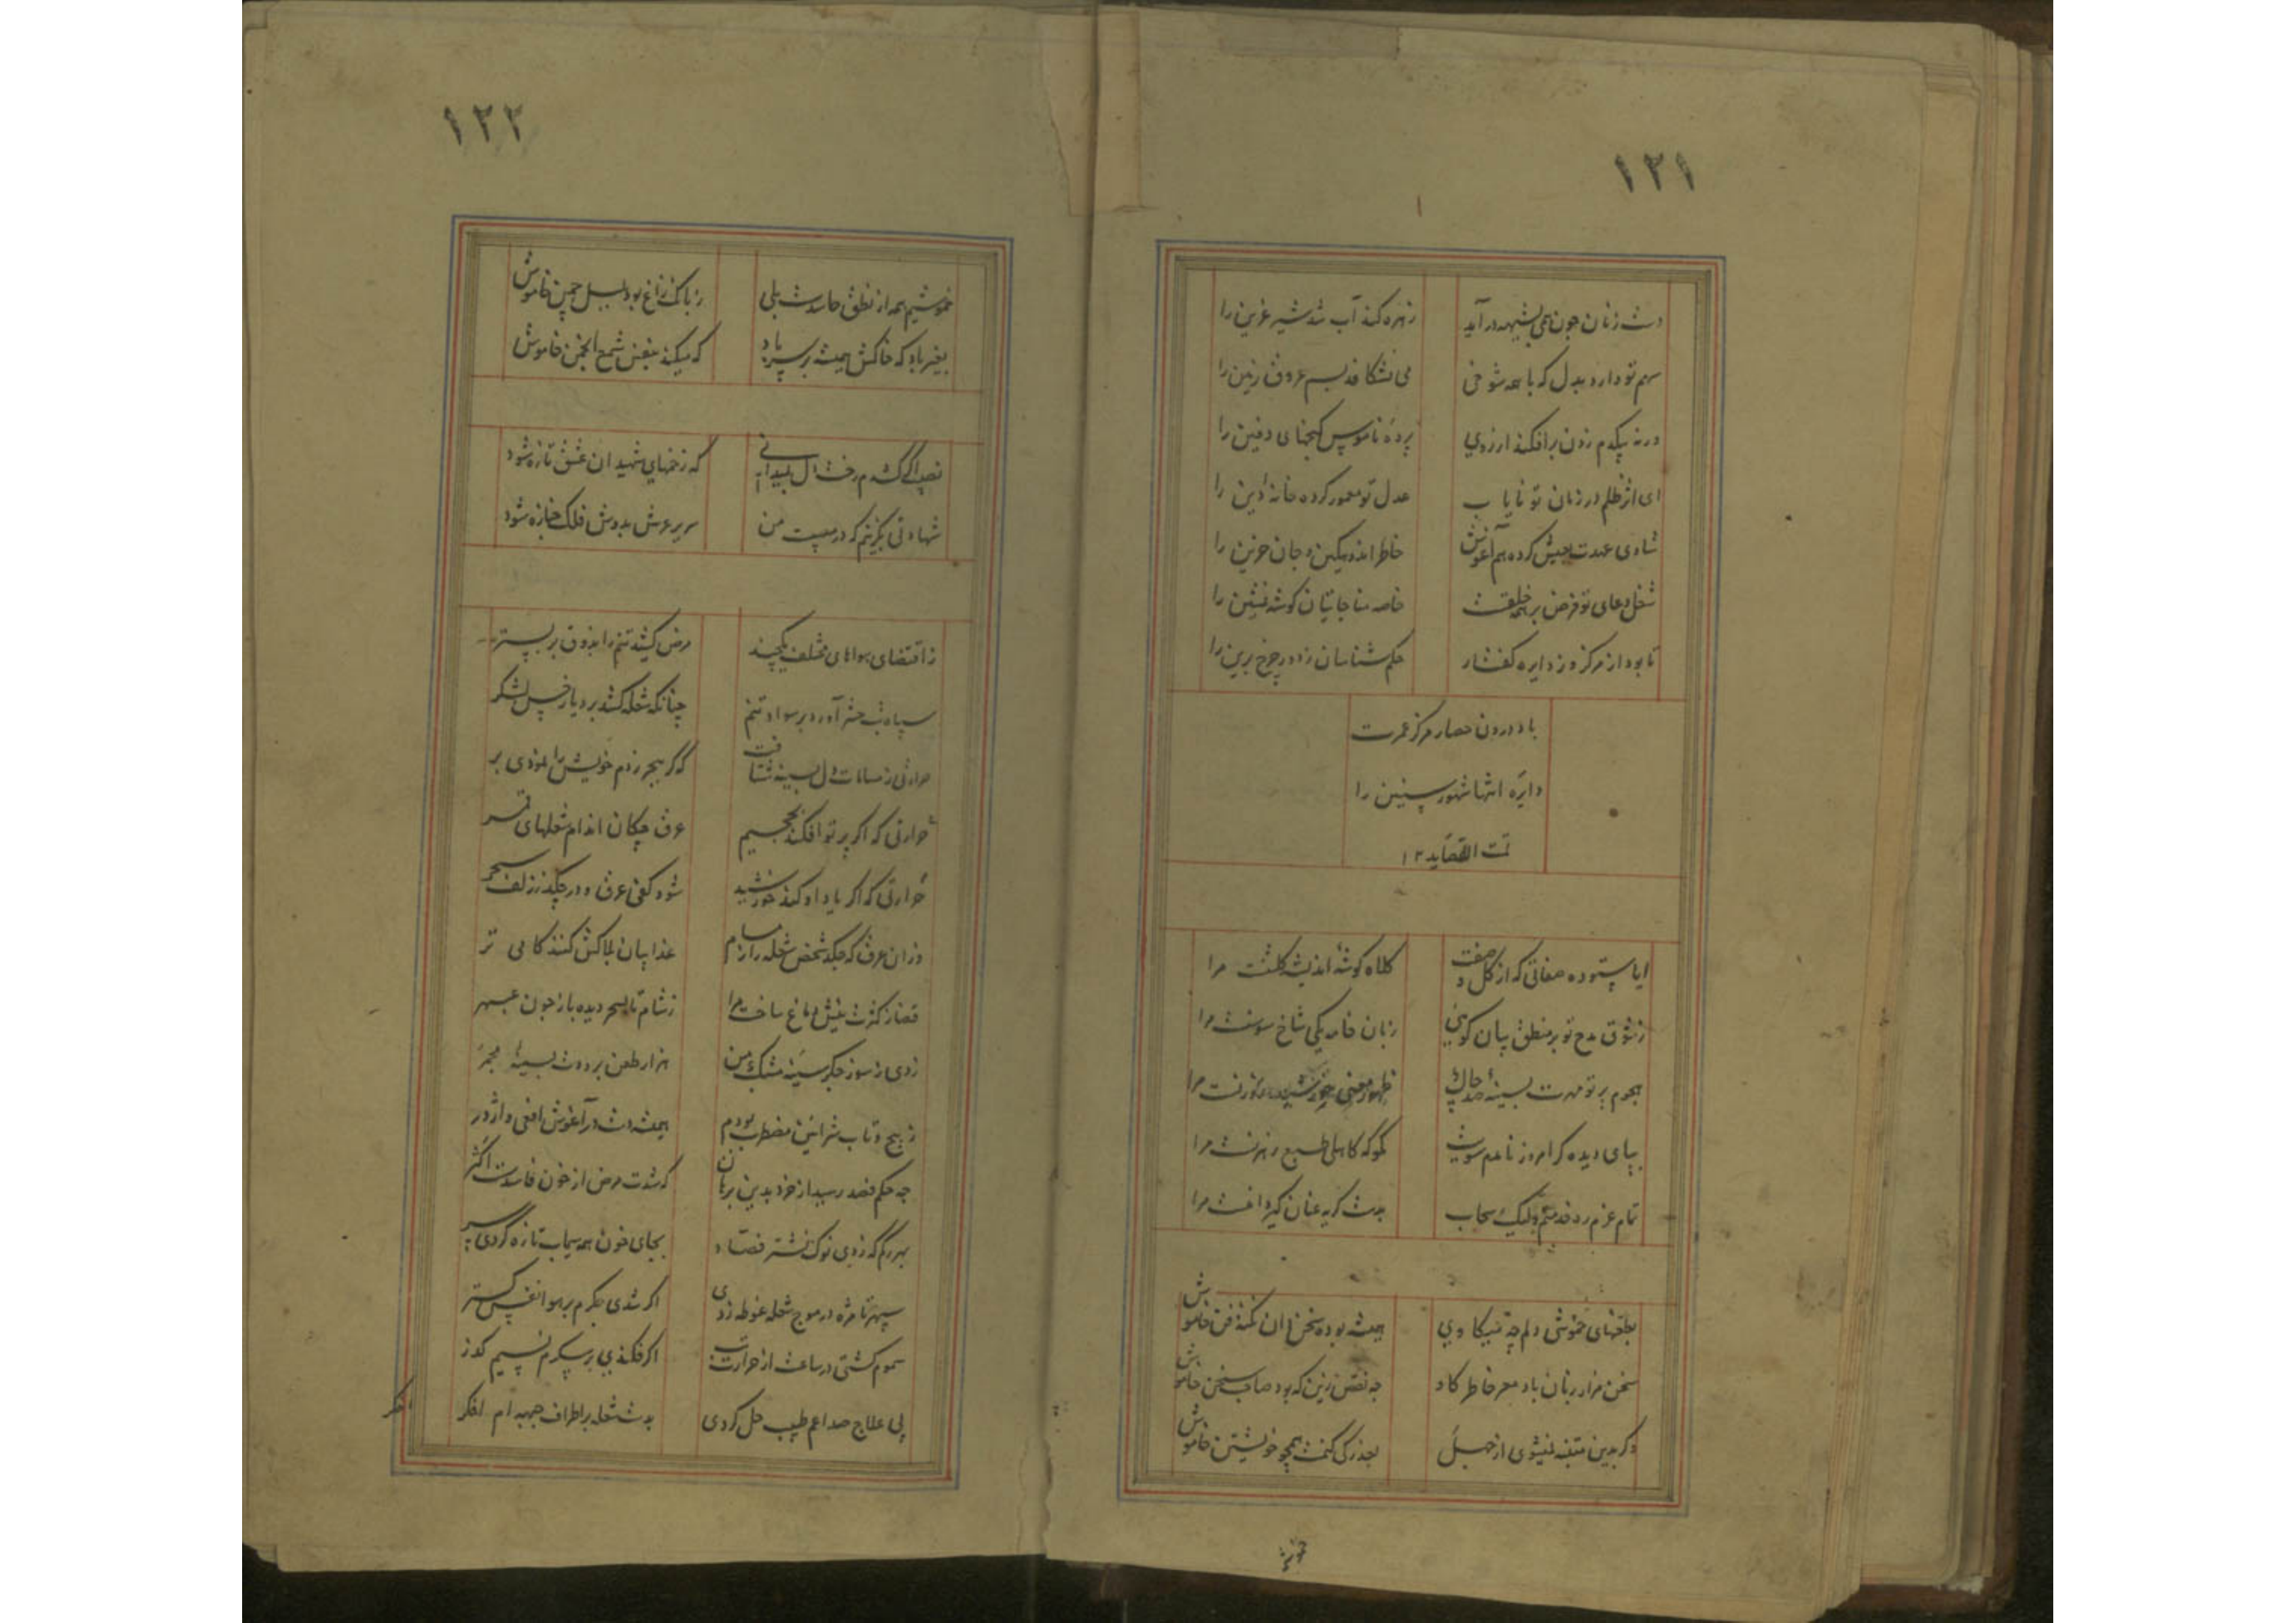 ۱۲۱
دست زنان چون به بیشه در آید زهره کند آب شد شیر عرین را
سهم تو دارد بدل که با همه شوخی می نشکافد بسم عروق زمین را
ورنه بیکدم زدن برافکند ار روی پرده ناموس گنجهای دفین را
ای اثر ظلم در زمان تو نایاب عدل تو معمور کرده خانه دین را
شادی عهدت بعیش کرده هم آغوش خاطر اندوهگین و جان حزین را
شغل دعای تو فرض بر همه خلقست خاصه مناجاتیان گوشه نشین را
تا بود از مرکز و ز دایره گفتار حکم شناسان دور چرخ برین را
باد درون حصار مرکز عمرت
دایره انتها شهور سنین را
تمت القصاید ۱۲
ایا ستوده صفاتی که از گل وصفت کلاه گوشه اندیشه گلشنست مرا
ز شوق مدح تو بر منطق بیان گویی زبان خامه یکی شاخ سوسنست مرا
هجوم پرتو مهرت بسینه صد چاک ظهور معنی خورشید و روزنست مرا
بپای دیده گر امروز نامدم سویت مگو که کاهلی طبع رهزنست مرا
تمام عزم ره خدمتم ولیک سحاب بدست گریه عنان گیر دامنست مرا
بطعنهای خموشی دلم چه میکاوی همیشه بوده سخن دان نکته فن خاموش
سخن هزار زبان باد معر خاطر کاو چه نقص ازین که بود صاحب سخن خاموش
وگر بدین متنبه نمیشوی از جهل بعذر کی کنمت همچو خویشتن خاموش
خموشیم
۱۲۲
خموشیم همه از نطق حاسدست بلی ز بانگ زاغ بود بلبل چمن خاموش
بغیر باد که خاکش همیشه بر سر باد که میکند بنفس شمع انجمن خاموش
که زخمهای شهیدان عشق تازه شود
شهادتی بگزینم که در مصیبت من سریر عرش بدوش فلک جنازه شود
ز اقتضای هواهای مختلف یکچند مرض کشید تنم را بذوق بر بستر
سپاه تب حشر آورد بر سواد تنم چنانکه شعله کشد بر دیار خس لشکر
حرارتی ز مسامات دل بسینه شتافت که گر ببحر زدم خویش را نمودی بر
حرارتی که اگر پرتو افکند بجحیم عرق چکان اندام شعلهای سقر
حرارتی که اگر یاد او کند خورشید شود کفی عرق و در چکد ز زلف سحر
وزان عرق که چکد شخص شعله را ز مسام عذابیان بلاکش کنند کامی تر
قضا ز کثرت بینش دماغ ساخت مرا ز شام تا بسحر دیده باز چون عبهر
زدی ز سوز جگر سینه مشبک من هزار طعن برودت بسینه مجمر
ز پیچ و تاب شرائین مضطرب بودم همیشه دست در آغوش افعی و اژدر
چه حکم فصد رسید از خرد بدین برهان که شدت مرض از خون فاسدست اکثر
بهر رگم که زدی نوک نشتر فصاد بجای خون همه سیماب تازه کردی سر
سپهر تا مژه در موج شعله غوطه زدی اگر شدی جگرم بر هوا نفس گستر
سموم گشتی در ساعت از حرارت تب اگر فکندی بر پیکرم نسیم گذر
پی علاج صداعم طبیب حل کردی بدست شعله بر اطراف جبهه ام اخگر